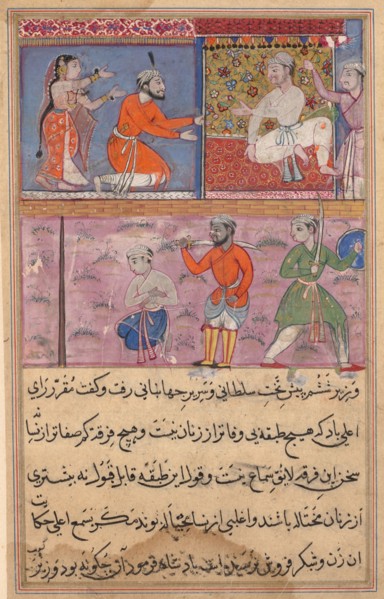 وزیر ششم پیش تخت سلطانی و سریر جهانبانی رفت و گفت مقرر رای
اعلی باد که هیچ طبقه بی وفاتر از زنان نیست و هیچ فرقه کدر صفاتر از نسا نه
سخن این فرقه لایق سماع نیست و قول این طبقه قابل قبول نه بیشتری
از زنان محتاله باشند و اغلبی از نسا بوند مگر بسمع اعلی حکایت
آن زن و شکر فروش نرسیده است پادشاه فرمود آن چگونه بود وزیر